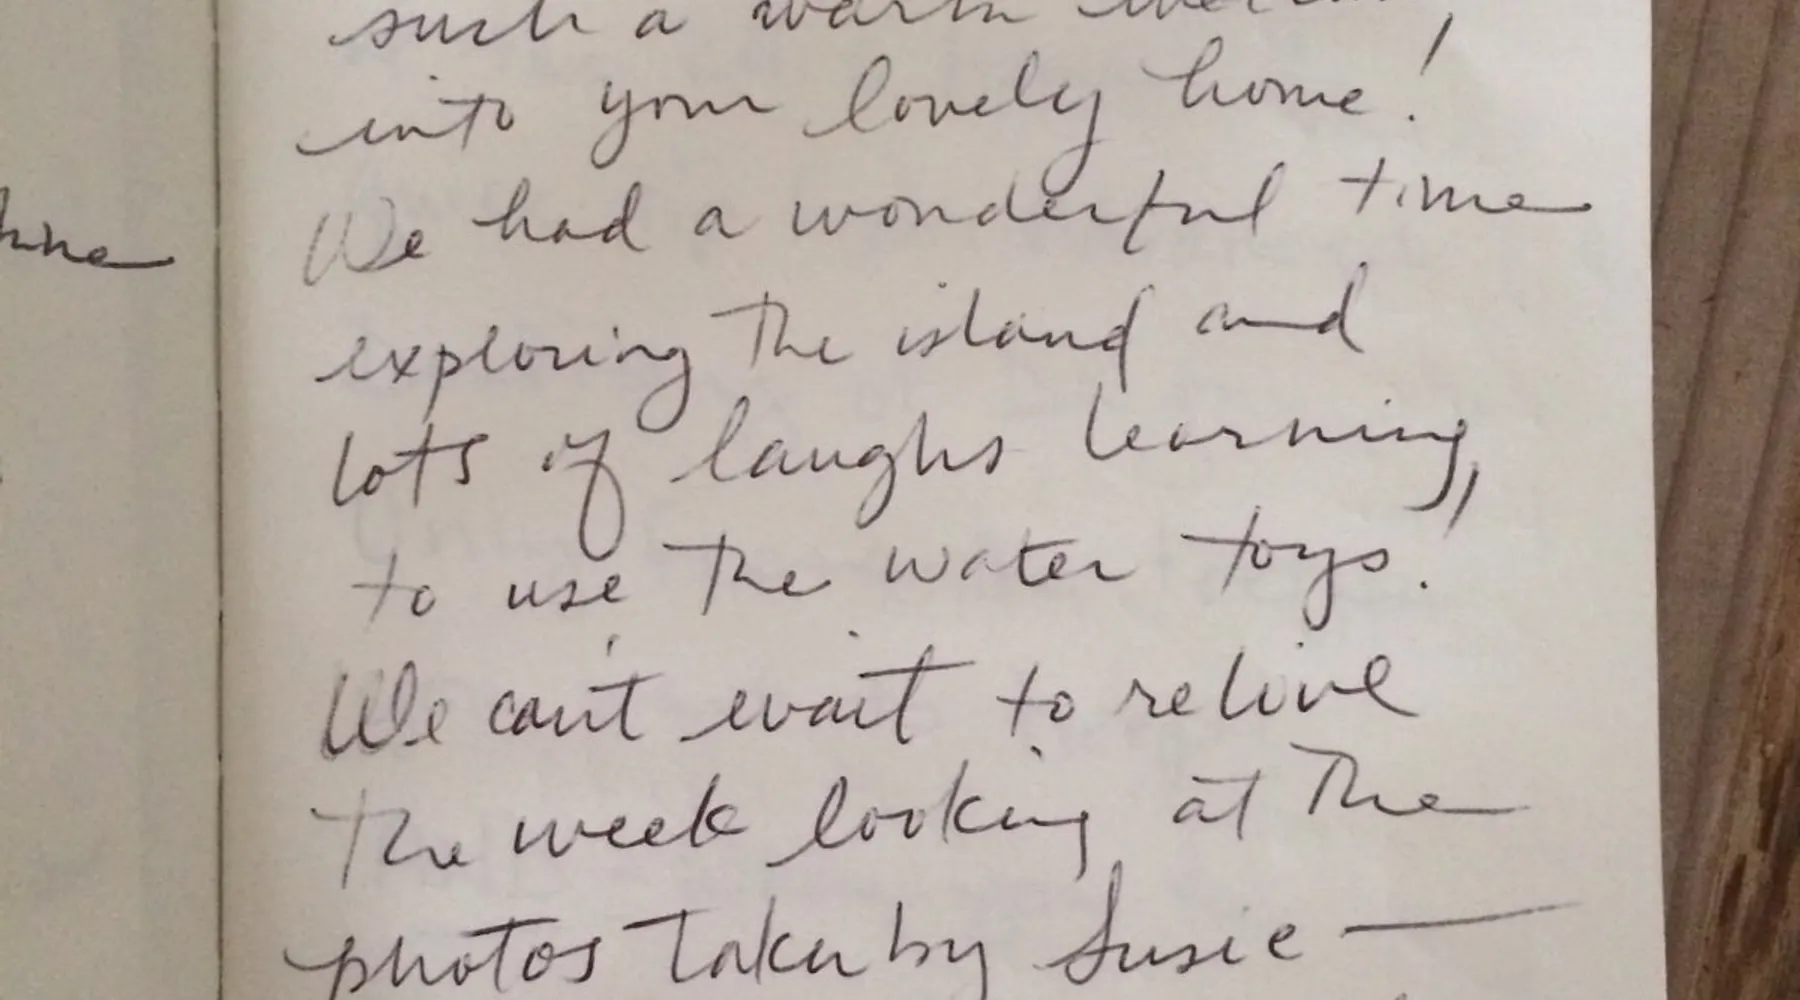 such a warm welcome
into your lovely home!
We had a wonderful time
exploring the island and
lots of laughs learning
to use the water toys!
We can't wait to relive
the week looking at the
photos taken by Susie —